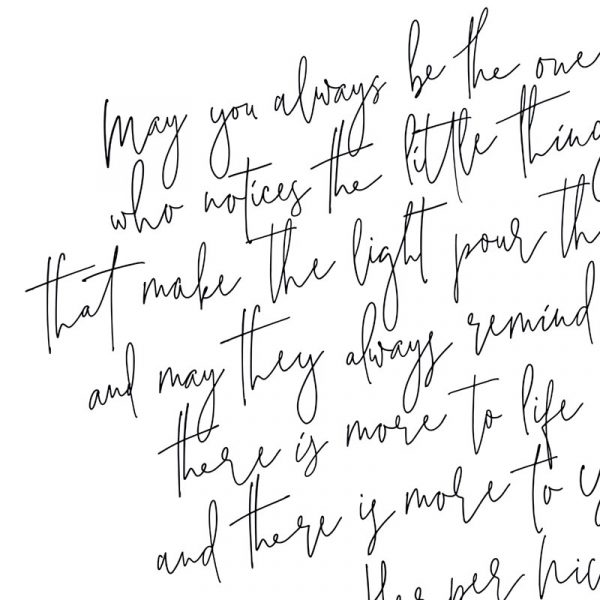 May you always be the one
who notices the little thing
that make the light pour th
and may they always remind
there is more to life
and there is more to y
per